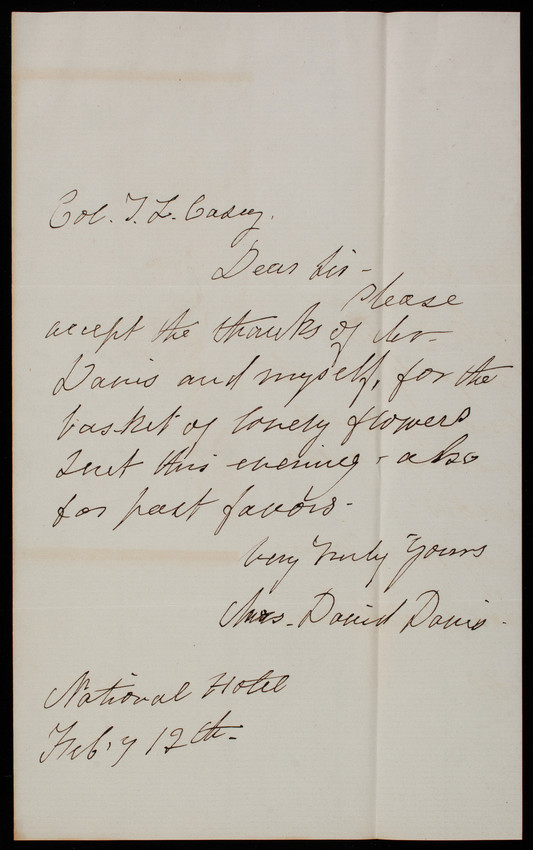 Col. T. L. Casey.
Dear Sir -
Please
accept the thanks of Mr
Davis and myself, for the
basket of lovely flowers
sent this evening - also
for past favors -
Very Truly Yours
Mrs. David Davis -
National Hotel
Feb'y 12th -